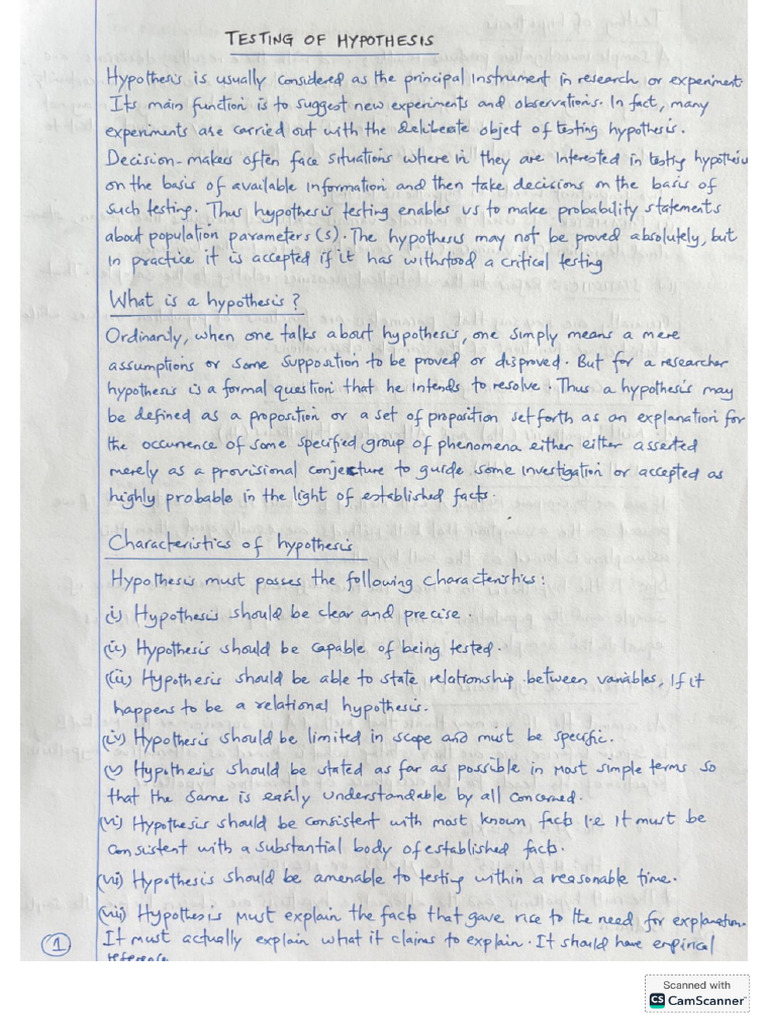 TESTING OF HYPOTHESIS
Hypothesis is usually considered as the principal instrument in research or experiment
Its main function is to suggest new experiments and observations. In fact, many
experiments are carried out with the deliberate object of testing hypothesis.
Decision-makers often face situations where in they are interested in testing hypothesis
on the basis of available information and then take decisions on the basis of
such testing. Thus hypothesis testing enables us to make probability statements
about population parameters(s). The hypothesis may not be proved absolutely, but
in practice it is accepted if it has withstood a critical testing
What is a hypothesis?
Ordinarily, when one talks about hypothesis, one simply means a mere
assumptions or some supposition to be proved or disproved. But for a researcher
hypothesis is a formal question that he intends to resolve. Thus a hypothesis may
be defined as a proposition or a set of proposition set forth as an explanation for
the occurrence of some specified group of phenomena either either asserted
merely as a provisional conjecture to guide some investigation or accepted as
highly probable in the light of established facts.
Characteristics of hypothesis
Hypothesis must posses the following characteristics:
(i) Hypothesis should be clear and precise.
(ii) Hypothesis should be capable of being tested.
(iii) Hypothesis should be able to state relationship between variables, if it
happens to be a relational hypothesis.
(iv) Hypothesis should be limited in scope and must be specific.
(v) Hypothesis should be stated as far as possible in most simple terms so
that the same is easily understandable by all concerned.
(vi) Hypothesis should be consistent with most known facts i.e it must be
consistent with a substantial body of established facts.
(vii) Hypothesis should be amenable to testing within a reasonable time.
(viii) Hypothesis must explain the facts that gave rise to the need for explanation.
It must actually explain what it claims to explain. It should have empirical
reference
1
Scanned with
CS CamScanner